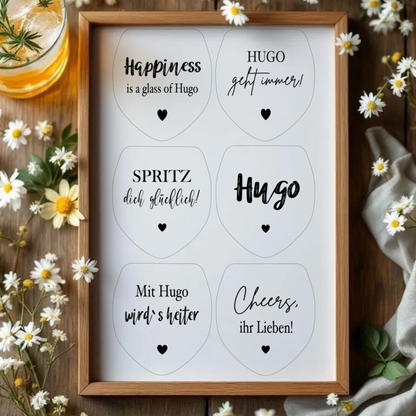 Happiness
is a glass of Hugo
HUGO
geht immer!
SPRITZ
dich glücklich!
Hugo
Mit Hugo
wird's heiter
Cheers,
ihr Lieben!